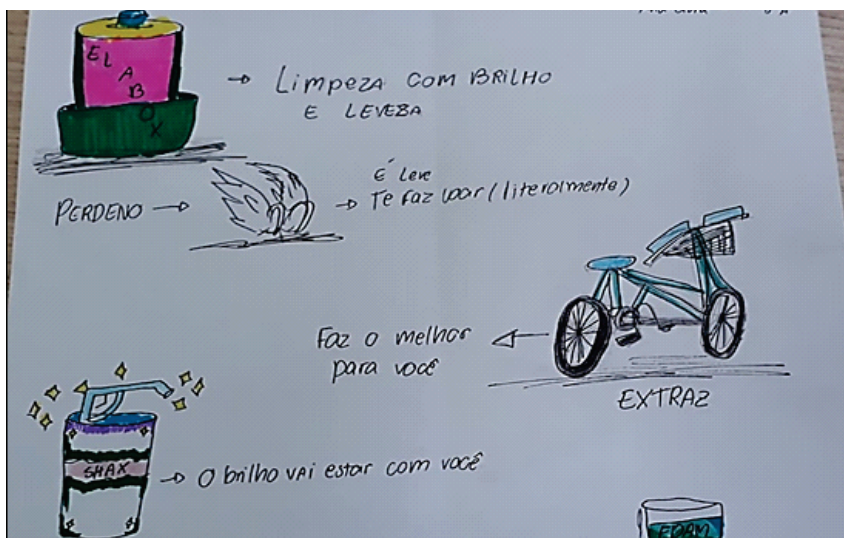 ELABOX
→ Limpeza com BRILHO
E LEVEBA
PERDENO →
→ É Leve
Te faz voar (literalmente)
Faz o melhor
para você
EXTRAZ
SHAX
→ O brilho vai estar com você